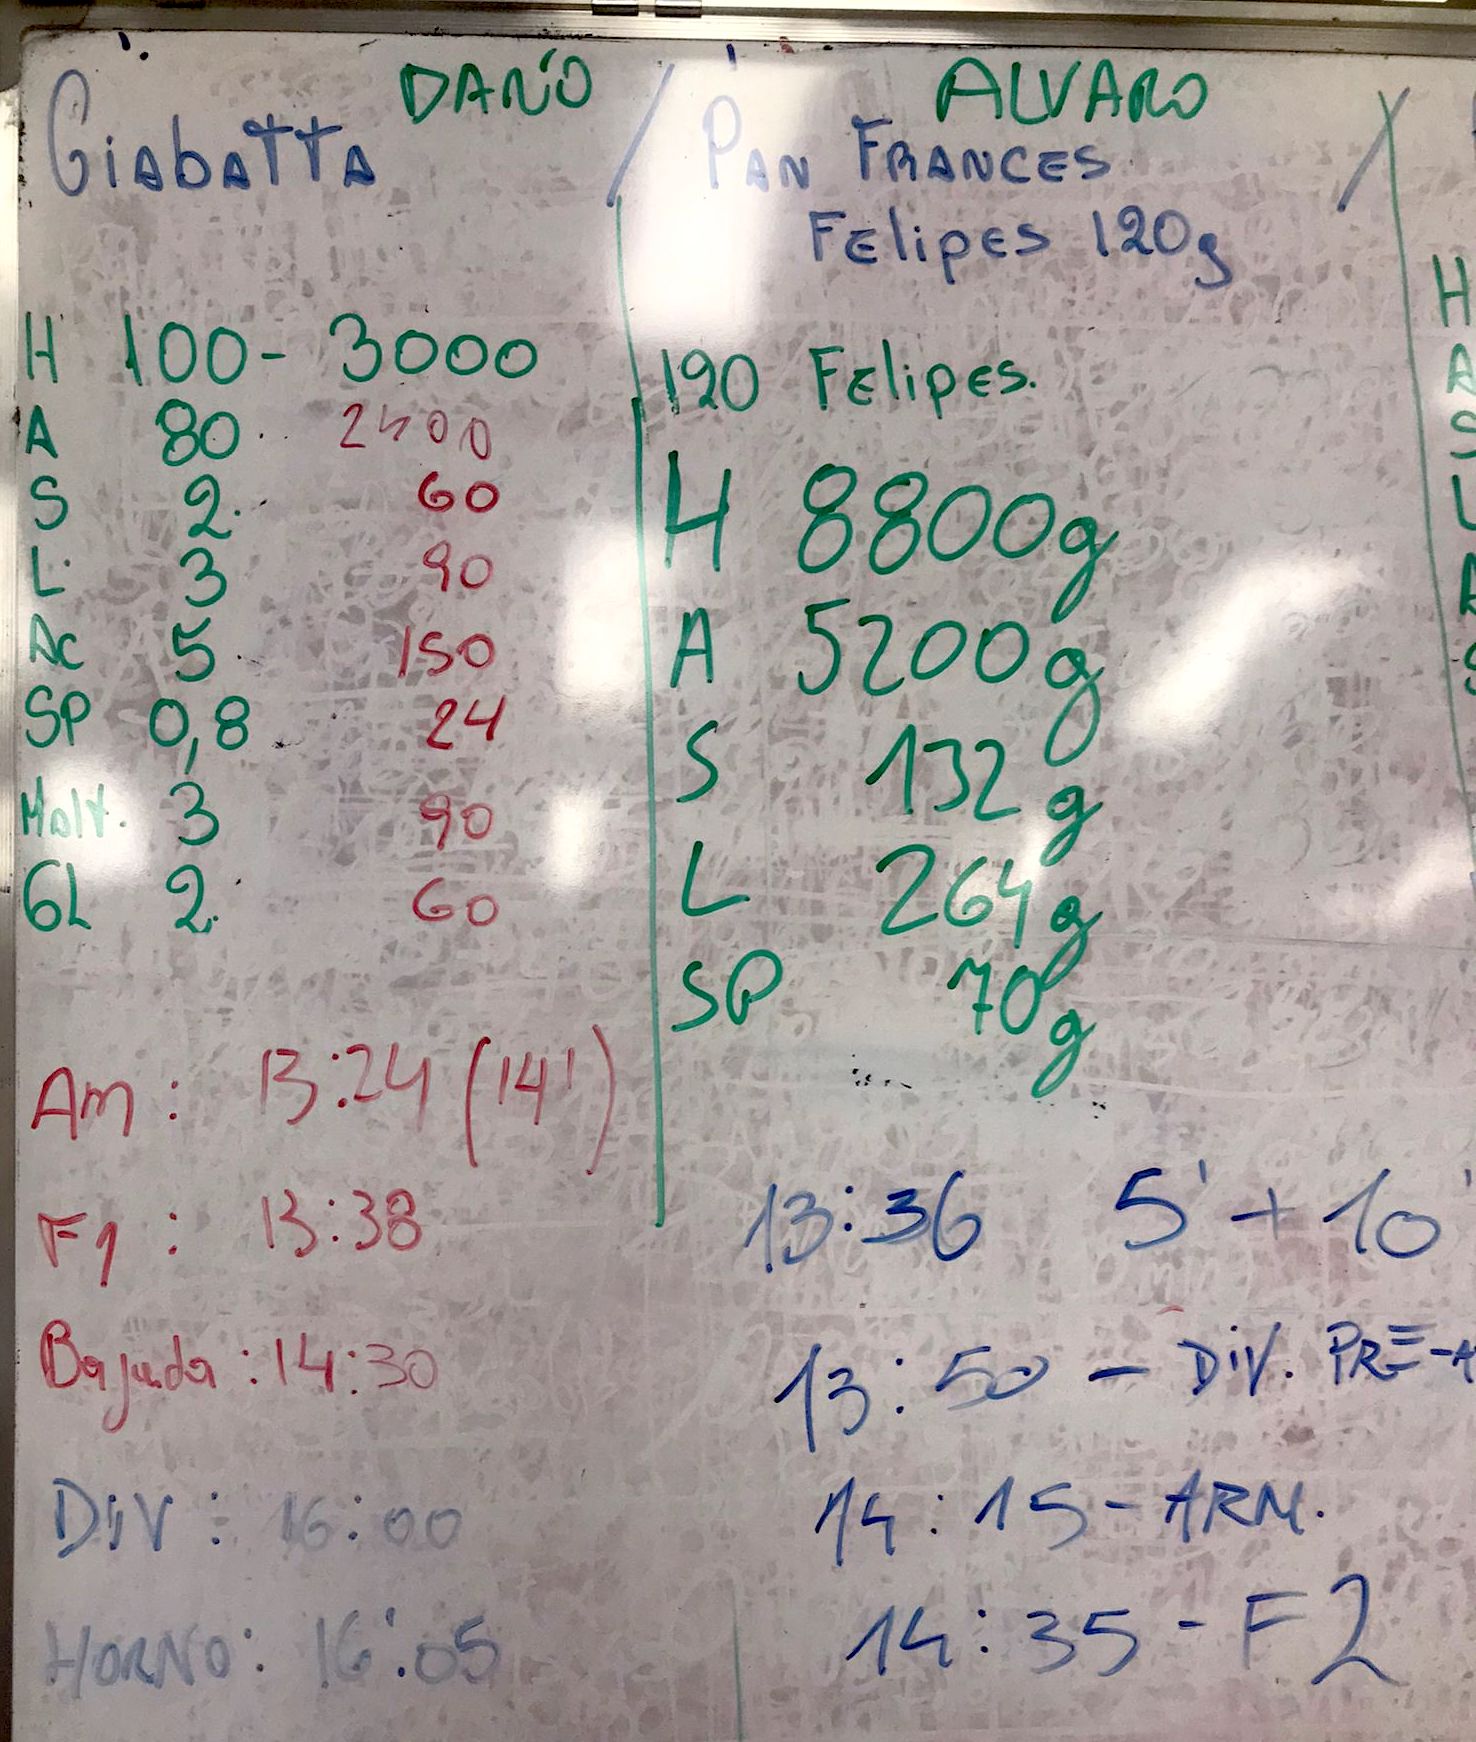 DARÍO
Ciabatta
H 100 - 3000
A 80 2400
S 2 60
L 3 90
Ac 5 150
SP 0,8 24
Malt. 3 90
GL 2 60
Am : 13:24 (14')
F1 : 13:38
Bajada : 14:30
DIV : 16:00
HORNO : 16:05
ALVARO
PAN FRANCES
FELIPES 120g
120 FELIPES.
H 8800g
A 5200g
S 132g
L 264g
SP 70g
13:36 5' + 10'
13:50 - DIV. PRE-A
14:15 - ARM.
14:35 - F2
H
A
S
L